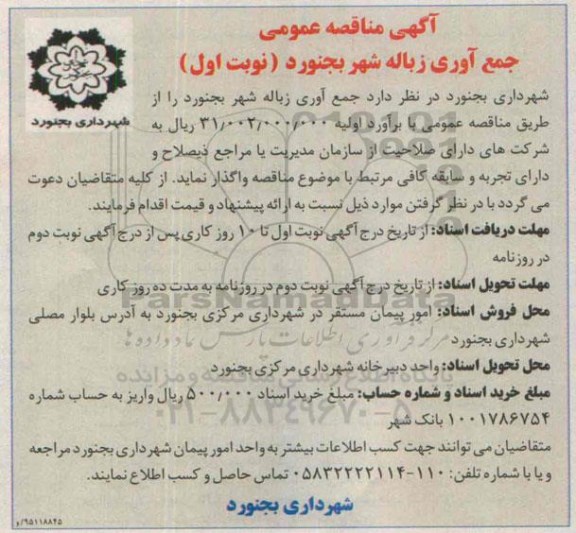 آگهی مناقصه عمومی
جمع آوری زباله شهر بجنورد (نوبت اول)
شهرداری بجنورد
شهرداری بجنورد در نظر دارد جمع آوری زباله شهر بجنورد را از
طریق مناقصه عمومی با برآورد اولیه ۳۱/۰۰۲/۰۰۰/۰۰۰ ریال به
شرکت های دارای صلاحیت از سازمان مدیریت یا مراجع ذیصلاح و
دارای تجربه و سابقه کافی مرتبط با موضوع مناقصه واگذار نماید. از کلیه متقاضیان دعوت
می گردد با در نظر گرفتن موارد ذیل نسبت به ارائه پیشنهاد و قیمت اقدام فرمایند.
مهلت دریافت اسناد: از تاریخ درج آگهی نوبت اول تا ۱۰ روز کاری پس از درج آگهی نوبت دوم
در روزنامه
مهلت تحویل اسناد: از تاریخ درج آگهی نوبت دوم در روزنامه به مدت ده روز کاری
ParsNamadData
محل فروش اسناد: امور پیمان مستقر در شهرداری مرکزی بجنورد به آدرس بلوار مصلی
شهرداری بجنورد
مرکز فرآوری اطلاعات پارس نماد داده ها
محل تحویل اسناد: واحد دبیرخانه شهرداری مرکزی بجنورد
پایگاه اطلاع رسانی مناقصه و مزایده
مبلغ خرید اسناد و شماره حساب: مبلغ خرید اسناد ۵۰۰/۰۰۰ ریال واریز به حساب شماره
۰۲۱-۸۸۳۴۹۶۷۰-۵
۱۰۰۱۷۸۶۷۵۴ بانک شهر
متقاضیان می توانند جهت کسب اطلاعات بیشتر به واحد امور پیمان شهرداری بجنورد مراجعه
و یا با شماره تلفن: ۱۱۰-۰۵۸۳۲۲۲۲۱۱۴ تماس حاصل و کسب اطلاع نمایند.
شهرداری بجنورد
۹۵۱۱۸۸۴۵/و